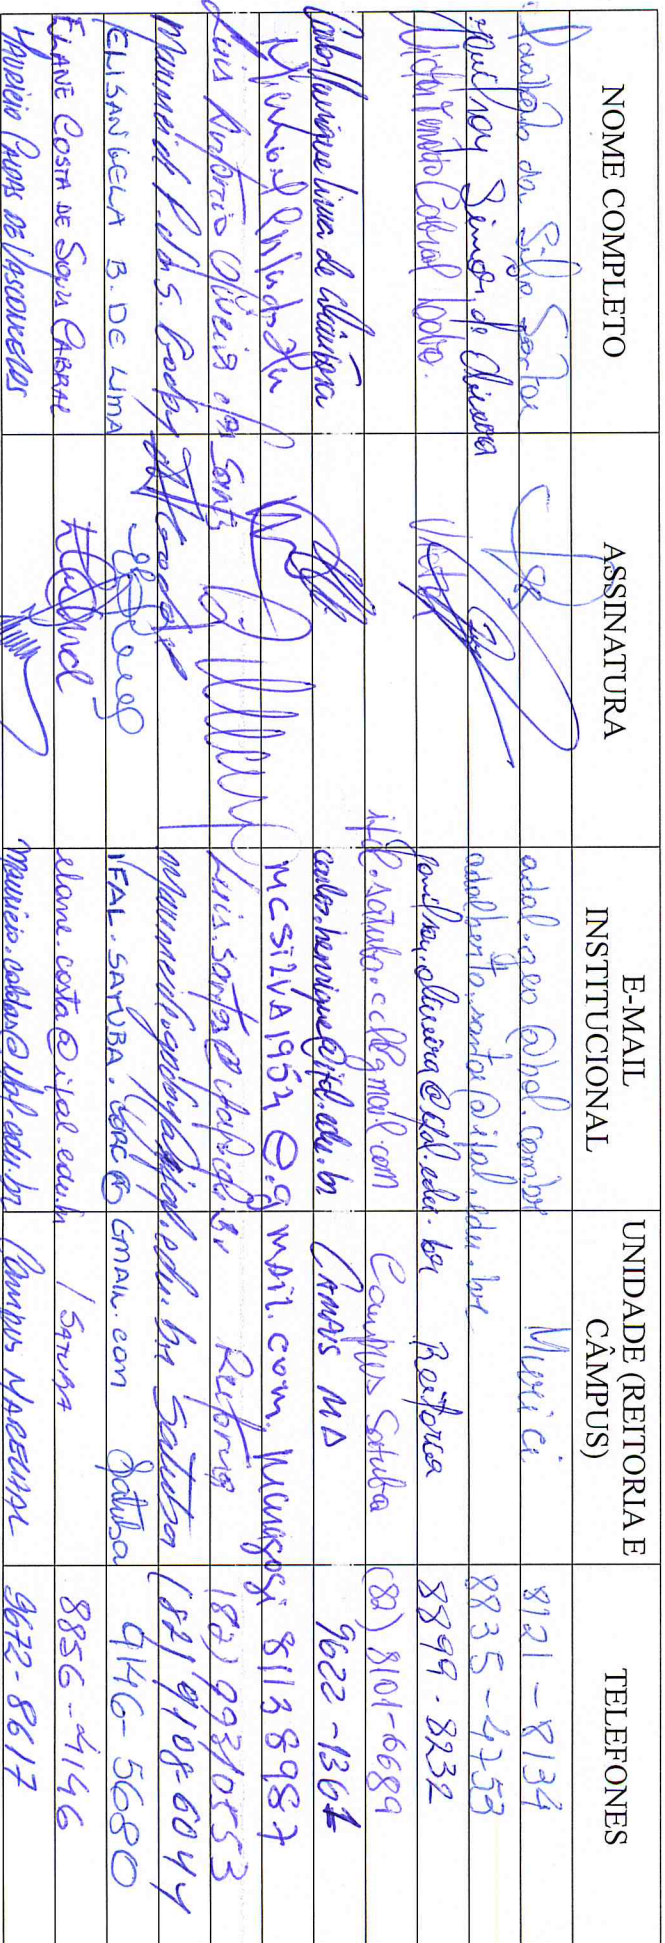 NOME COMPLETO ASSINATURA E-MAIL INSTITUCIONAL UNIDADE (REITORIA E CÂMPUS) TELEFONES
da Silva Santos adal.geo@bol.com.br Murici 8121-8134
de Oliveira adalberto.santos@ifal.edu.br 8835-4753
Cabral Lobo. Victor oliveira@ifal.edu.br Reitoria 8899-8232
ifal.satuba.cc@gmail.com Campus Satuba (82) 8101-6689
Carlos Henrique de carlos.henrique@ifal.edu.br MD 9622-1361
MCSILVA1952@gmail.com. 8113 8987
Luis Antonio Oliveira dos Santos luis.santos@ifal.edu.br Reitoria (82) 99310553
P. dos S. Godoy Satuba (82) 9108-6044
ELISANGELA B. DE LIMA IFAL.SATUBA. @GMAIL.COM Satuba 9146-5680
ELANE COSTA DE CABRAL elane.costa@ifal.edu.br / SATUBA 8856-4146
MAURICIO CALDAS DE VASCONCELOS mauricio.caldas@ifal.edu.br Campus MARECHAL 9672-8617